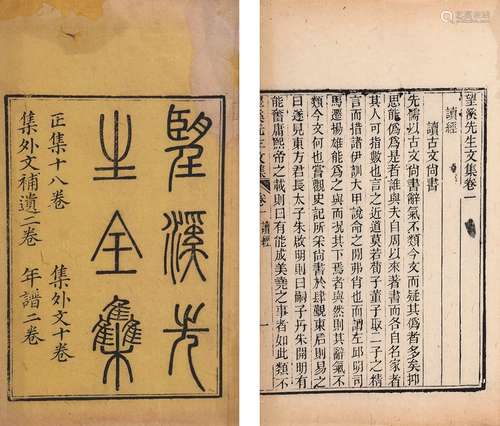 望溪先
生全集
正集十八卷 集外文十卷
集外文補遺二卷 年譜二卷
望溪先生文集卷一
讀經
讀古文尚書
先儒以古文尚書辭氣不類今文而疑其偽者多矣抑
思能偽為是者誰與夫自周以來著書而各自名家者
其人可指數也言之近道莫若荀子董子取二子之精
言而措諸伊訓大甲說命之間弗肖也而謂左邱明司
馬遷揚雄能為之與而況其下焉者與然則其辭氣不
類今文何也嘗觀史記所采尚書於肆覲東后則易之
曰遂見東方君長太子朱啟明則曰嗣子丹朱開明有
能奮庸熙帝之載則曰有能成美堯之事者如此類不
望溪先生文集 卷一 讀經 一